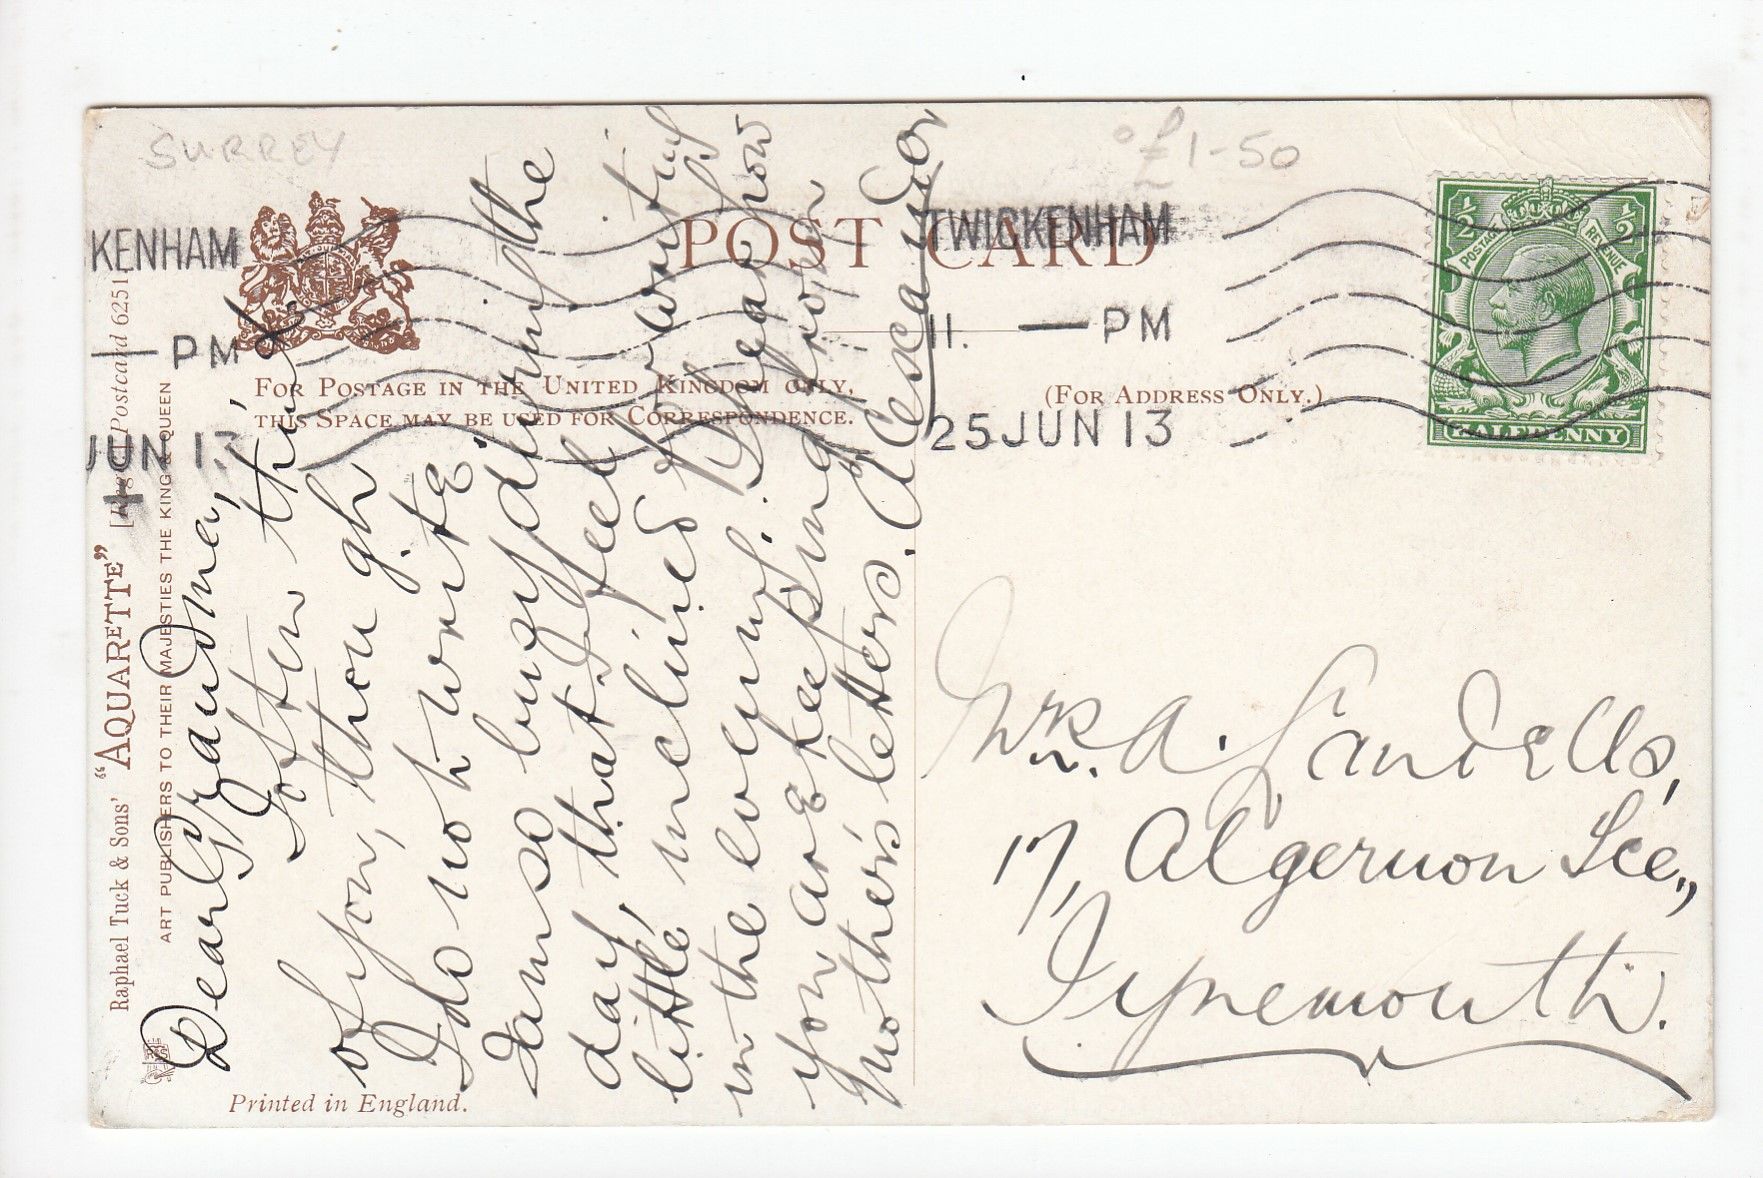 SURREY
£1-50
KENHAM
— PM
JUN 13
POST CARD
TWICKENHAM
11. — PM
25 JUN 13
FOR POSTAGE IN THE UNITED KINGDOM ONLY,
THIS SPACE MAY BE USED FOR CORRESPONDENCE.
(FOR ADDRESS ONLY.)
½ ½
POSTAGE REVENUE
HALFPENNY
Raphael Tuck & Sons' "AQUARETTE" [Regd Postcard 6251
ART PUBLISHERS TO THEIR MAJESTIES THE KING & QUEEN
Printed in England.
Dear Grandma,
I often think
of you, though
I do not write.
I am so busy during the
day, that I feel
little inclined for writing
in the evening. I hear how
you are keeping from
mother's letters. A Cescaudor
Mrs. A. Sandells,
17, Algernon Tce.,
Tynemouth.